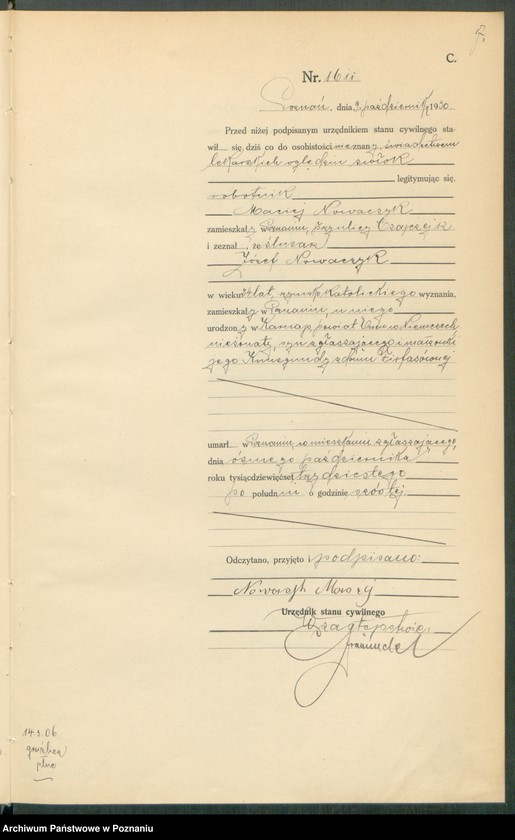 C.
Nr. 1611
Poznań, dnia 9 październik 1930
Przed niżej podpisanym urzędnikiem stanu cywilnego sta-
wił się, dziś co do osobistości nieznany, świadectwem
lekarskich oględzin zwłok
legitymując się,
robotnik
Maciej Nowaczyk
zamieszkały w Poznaniu, przy ulicy Czajczej
i zeznał, że ślusarz
Józef Nowaczyk
w wieku lat, rzymsko katolickiego wyznania,
zamieszkały w Poznaniu, u niego
urodzony w Kamap powiat w Niemczech
nieżonaty, syn zgłaszającego i małżonki
jego Kunegundy z domu
umarł w Poznaniu, w mieszkaniu zgłaszającego,
dnia ósmego października
roku tysiącdziewięćset trzydziestego
po południu o godzinie szóstej.
Odczytano, przyjęto i podpisano:
Nowaczyk Maciej
Urzędnik stanu cywilnego
W zastępstwie:
14.3.06
gruźlica
płuc
Archiwum Państwowe w Poznaniu